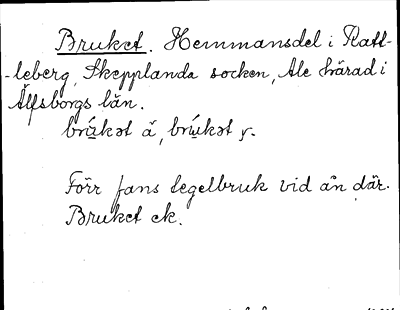 Bruket. Hemmansdel i Katt-
-leberg, Skepplanda socken, Ale härad i
Älfsborgs län.
brúkət å, brúkət y.
Förr fans tegelbruk vid ån där.
Bruket ek.